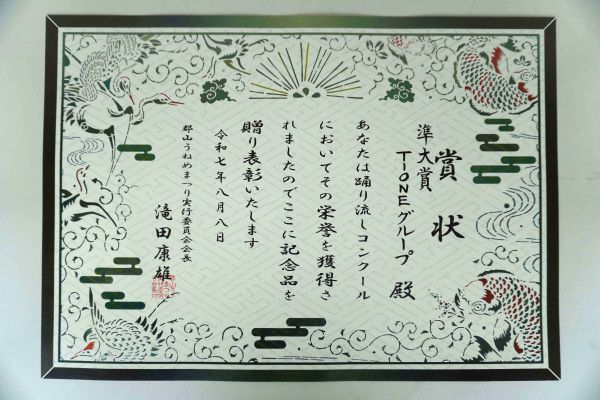 賞状
準大賞
TiONEグループ 殿
あなたは踊り流しコンクール
においてその栄誉を獲得さ
れましたのでここに記念品を
贈り表彰いたします
令和七年八月八日
郡山うねめまつり実行委員会会長
滝田康雄